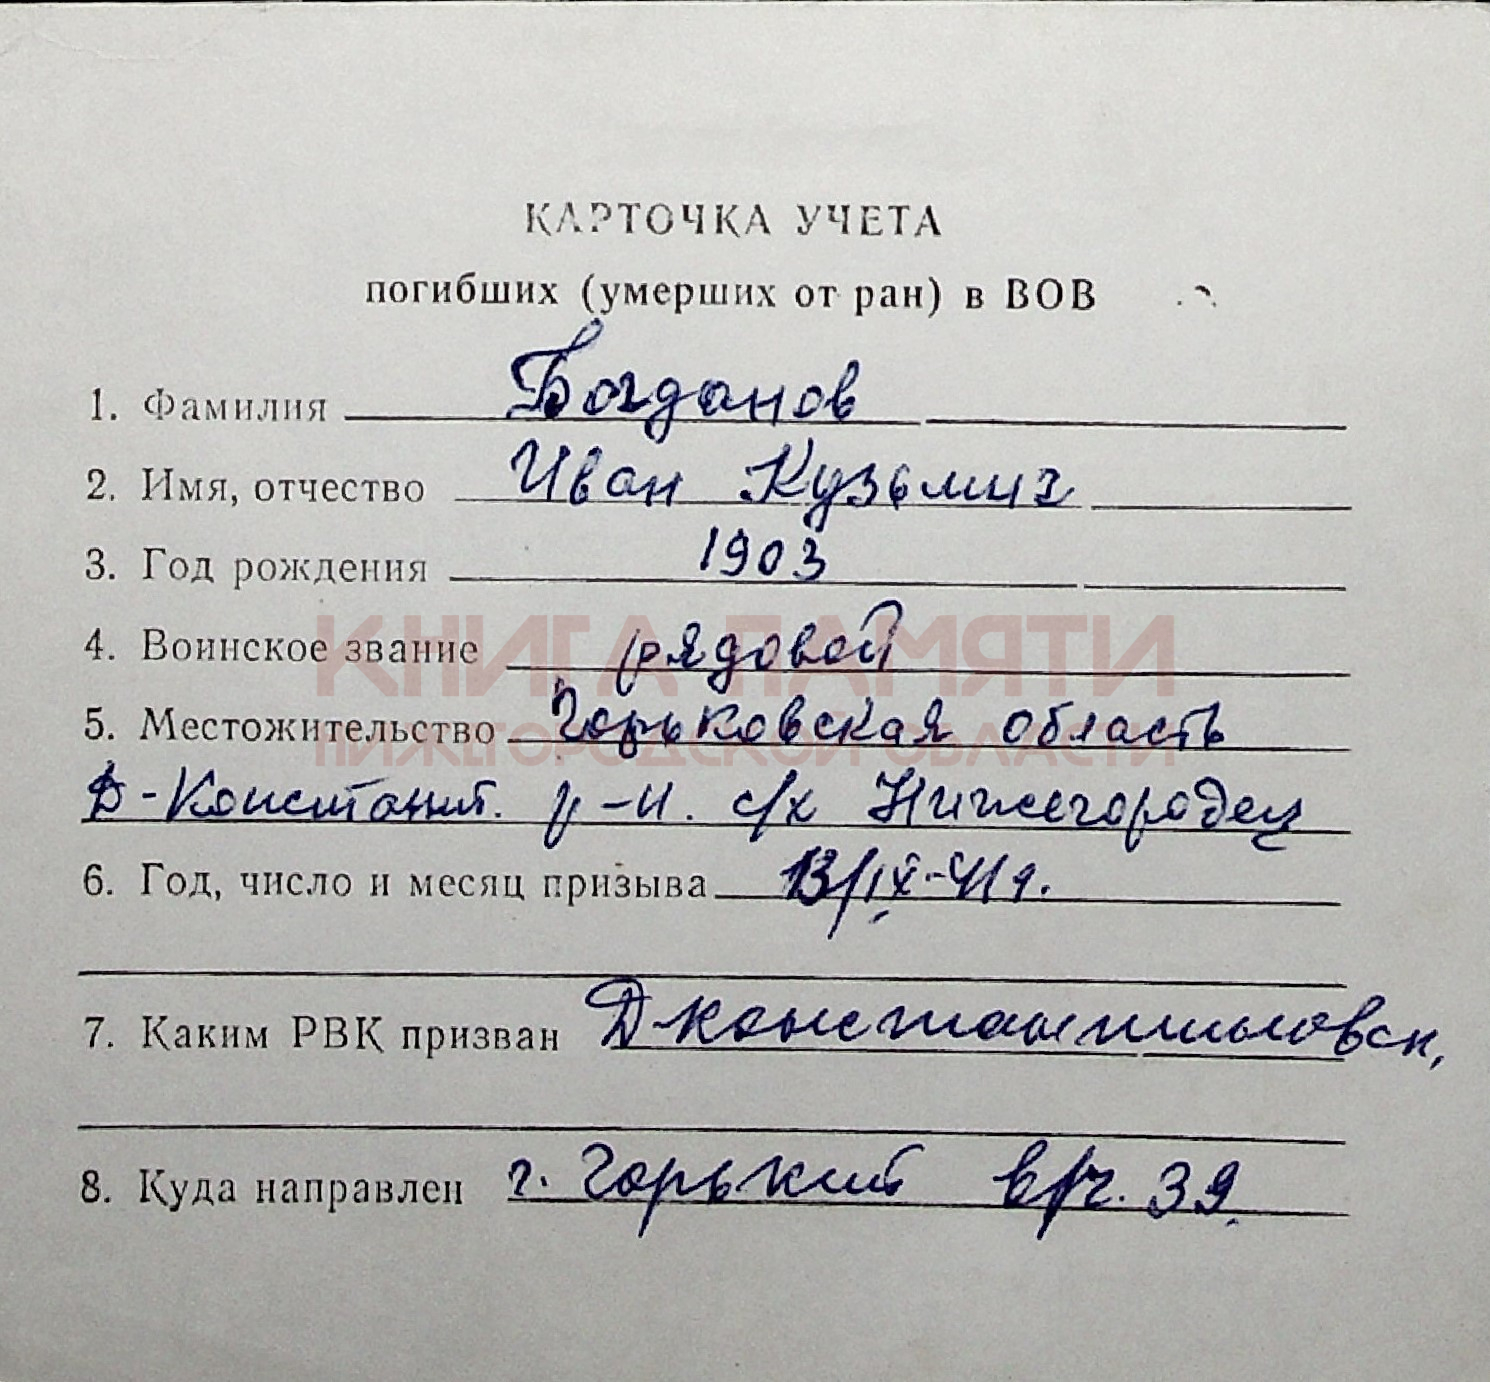 КАРТОЧКА УЧЕТА
погибших (умерших от ран) в ВОВ
1. Фамилия Богданов
2. Имя, отчество Иван Кузьмич
3. Год рождения 1903
4. Воинское звание рядовой
КНИГА ПАМЯТИ
5. Местожительство Горьковская область
НИЖЕГОРОДСКОЙ ОБЛАСТИ
Д-Констант. р-н. с/х Нижегородец
6. Год, число и месяц призыва 13/IX-41г.
7. Каким РВК призван Дконстантиновск,
8. Куда направлен г. Горький в/ч. 39.